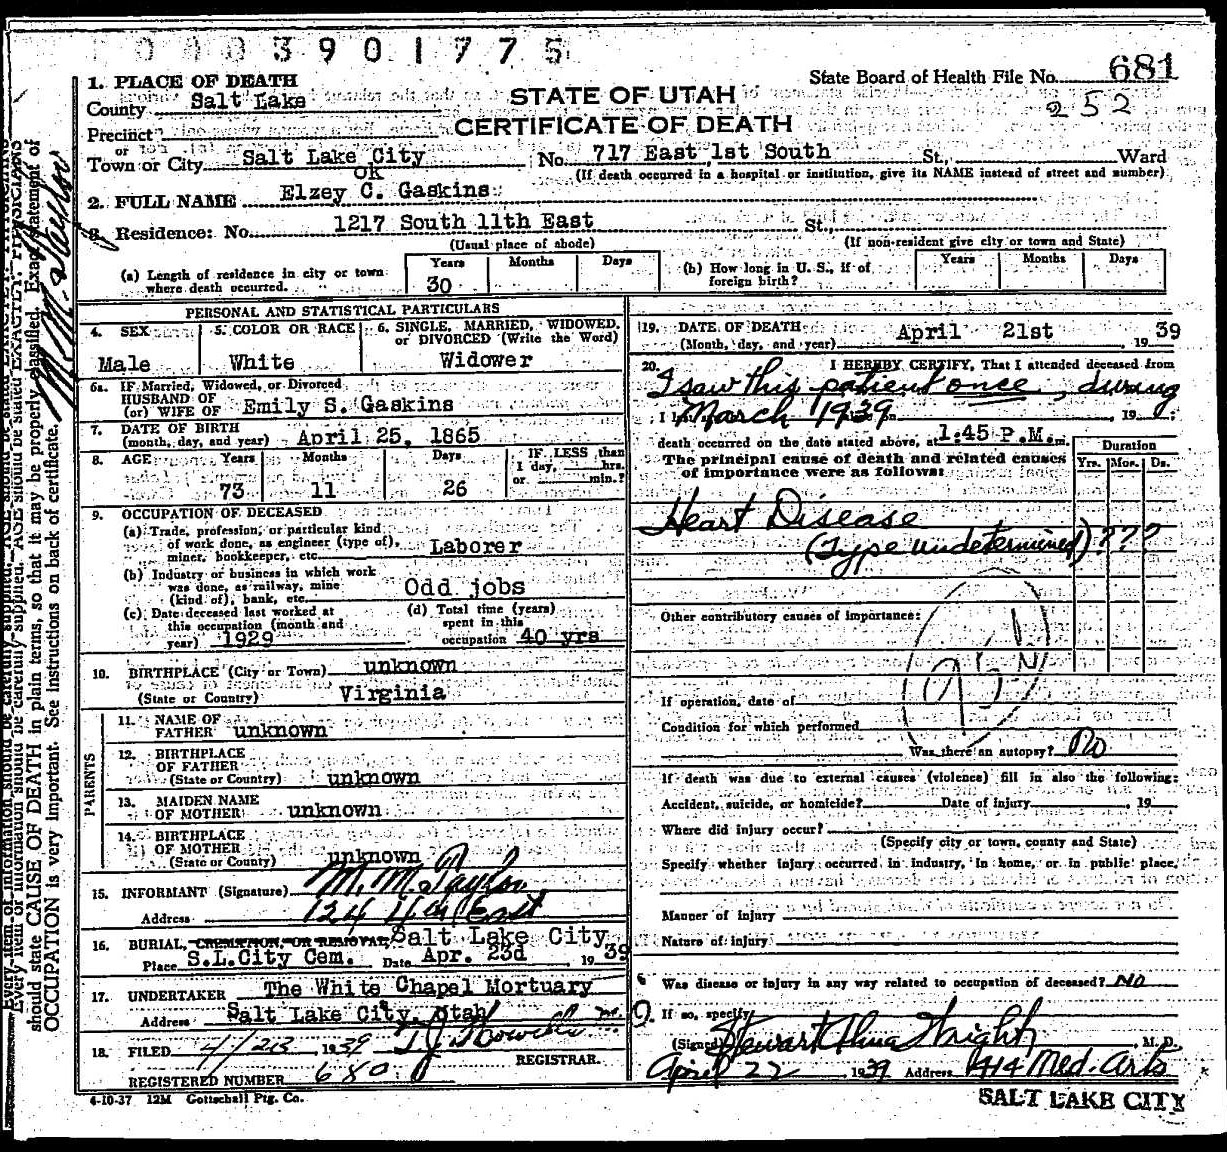 0003901775
State Board of Health File No. 681
252
STATE OF UTAH
CERTIFICATE OF DEATH
1. PLACE OF DEATH
County Salt Lake
Precinct
or
Town or City Salt Lake City No. 717 East 1st South St., Ward
(If death occurred in a hospital or institution, give its NAME instead of street and number)
OK
2. FULL NAME Elzey C. Gaskins
3. Residence: No. 1217 South 11th East St.,
(Usual place of abode) (If non-resident give city or town and State)
(a) Length of residence in city or town where death occurred. Years 30 Months Days
(b) How long in U. S., if of foreign birth? Years Months Days
PERSONAL AND STATISTICAL PARTICULARS
4. SEX Male
5. COLOR OR RACE White
6. SINGLE, MARRIED, WIDOWED, or DIVORCED (Write the Word) Widower
6a. IF Married, Widowed, or Divorced
HUSBAND OF
(or) WIFE OF Emily S. Gaskins
7. DATE OF BIRTH
(month, day, and year) April 25, 1865
8. AGE Years 73 Months 11 Days 26 IF LESS than 1 day, hrs. or min.?
9. OCCUPATION OF DECEASED
(a) Trade, profession, or particular kind
of work done, as engineer (type of),
miner, bookkeeper, etc. Laborer
(b) Industry or business in which work
was done, as railway, mine
(kind of), bank, etc. Odd jobs
(c) Date deceased last worked at
this occupation (month and
year) 1929
(d) Total time (years)
spent in this
occupation 40 yrs
10. BIRTHPLACE (City or Town) unknown
(State or Country) Virginia
PARENTS
11. NAME OF
FATHER unknown
12. BIRTHPLACE
OF FATHER
(State or Country) unknown
13. MAIDEN NAME
OF MOTHER unknown
14. BIRTHPLACE
OF MOTHER
(State or Country) unknown
15. INFORMANT (Signature) M. M. Taylor
Address 124 4th East
16. BURIAL, CREMATION, OR REMOVAL, Salt Lake City
Place S.L.City Cem. Date Apr. 23d 1939
17. UNDERTAKER The White Chapel Mortuary
Address Salt Lake City, Utah
18. FILED 4/23 1939
REGISTRAR.
REGISTERED NUMBER 680
4-10-37 12M Gottschall Ptg. Co.
19. DATE OF DEATH
(Month, day, and year) April 21st 1939
20. I HEREBY CERTIFY, That I attended deceased from
I saw this patient once, during
March 1939
19
death occurred on the date stated above, at 1:45 P.M. m.
The principal cause of death and related causes
of importance were as follows:
Duration
Yrs. Mos. Ds.
Heart Disease
(Type undetermined) ? ? ?
Other contributory causes of importance:
If operation, date of
Condition for which performed
Was there an autopsy? No
If death was due to external causes (violence) fill in also the following:
Accident, suicide, or homicide? Date of injury , 19
Where did injury occur?
(Specify city or town, county and State)
Specify whether injury occurred in industry, in home, or in public place.
Manner of injury
Nature of injury
Was disease or injury in any way related to occupation of deceased? No
If so, specify
(Signed) Stewart Alma Wright, M. D.
April 22 1939 Address 414 Med. Arts
SALT LAKE CITY
should state CAUSE OF DEATH in plain terms, so that it may be properly classified. Exact statement of
OCCUPATION is very important. See instructions on back of certificate.
M. M. Taylor